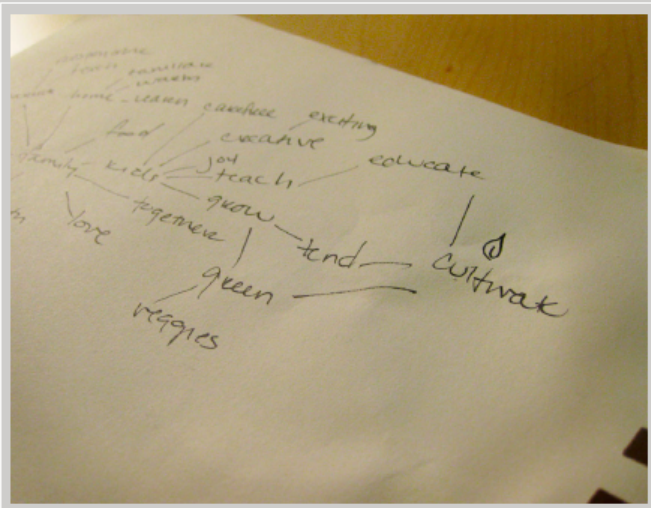 home
learn
carefree
exciting
food
creative
educate
family
kids
joy
teach
grow
together
love
tend
cultivate
green
veggies